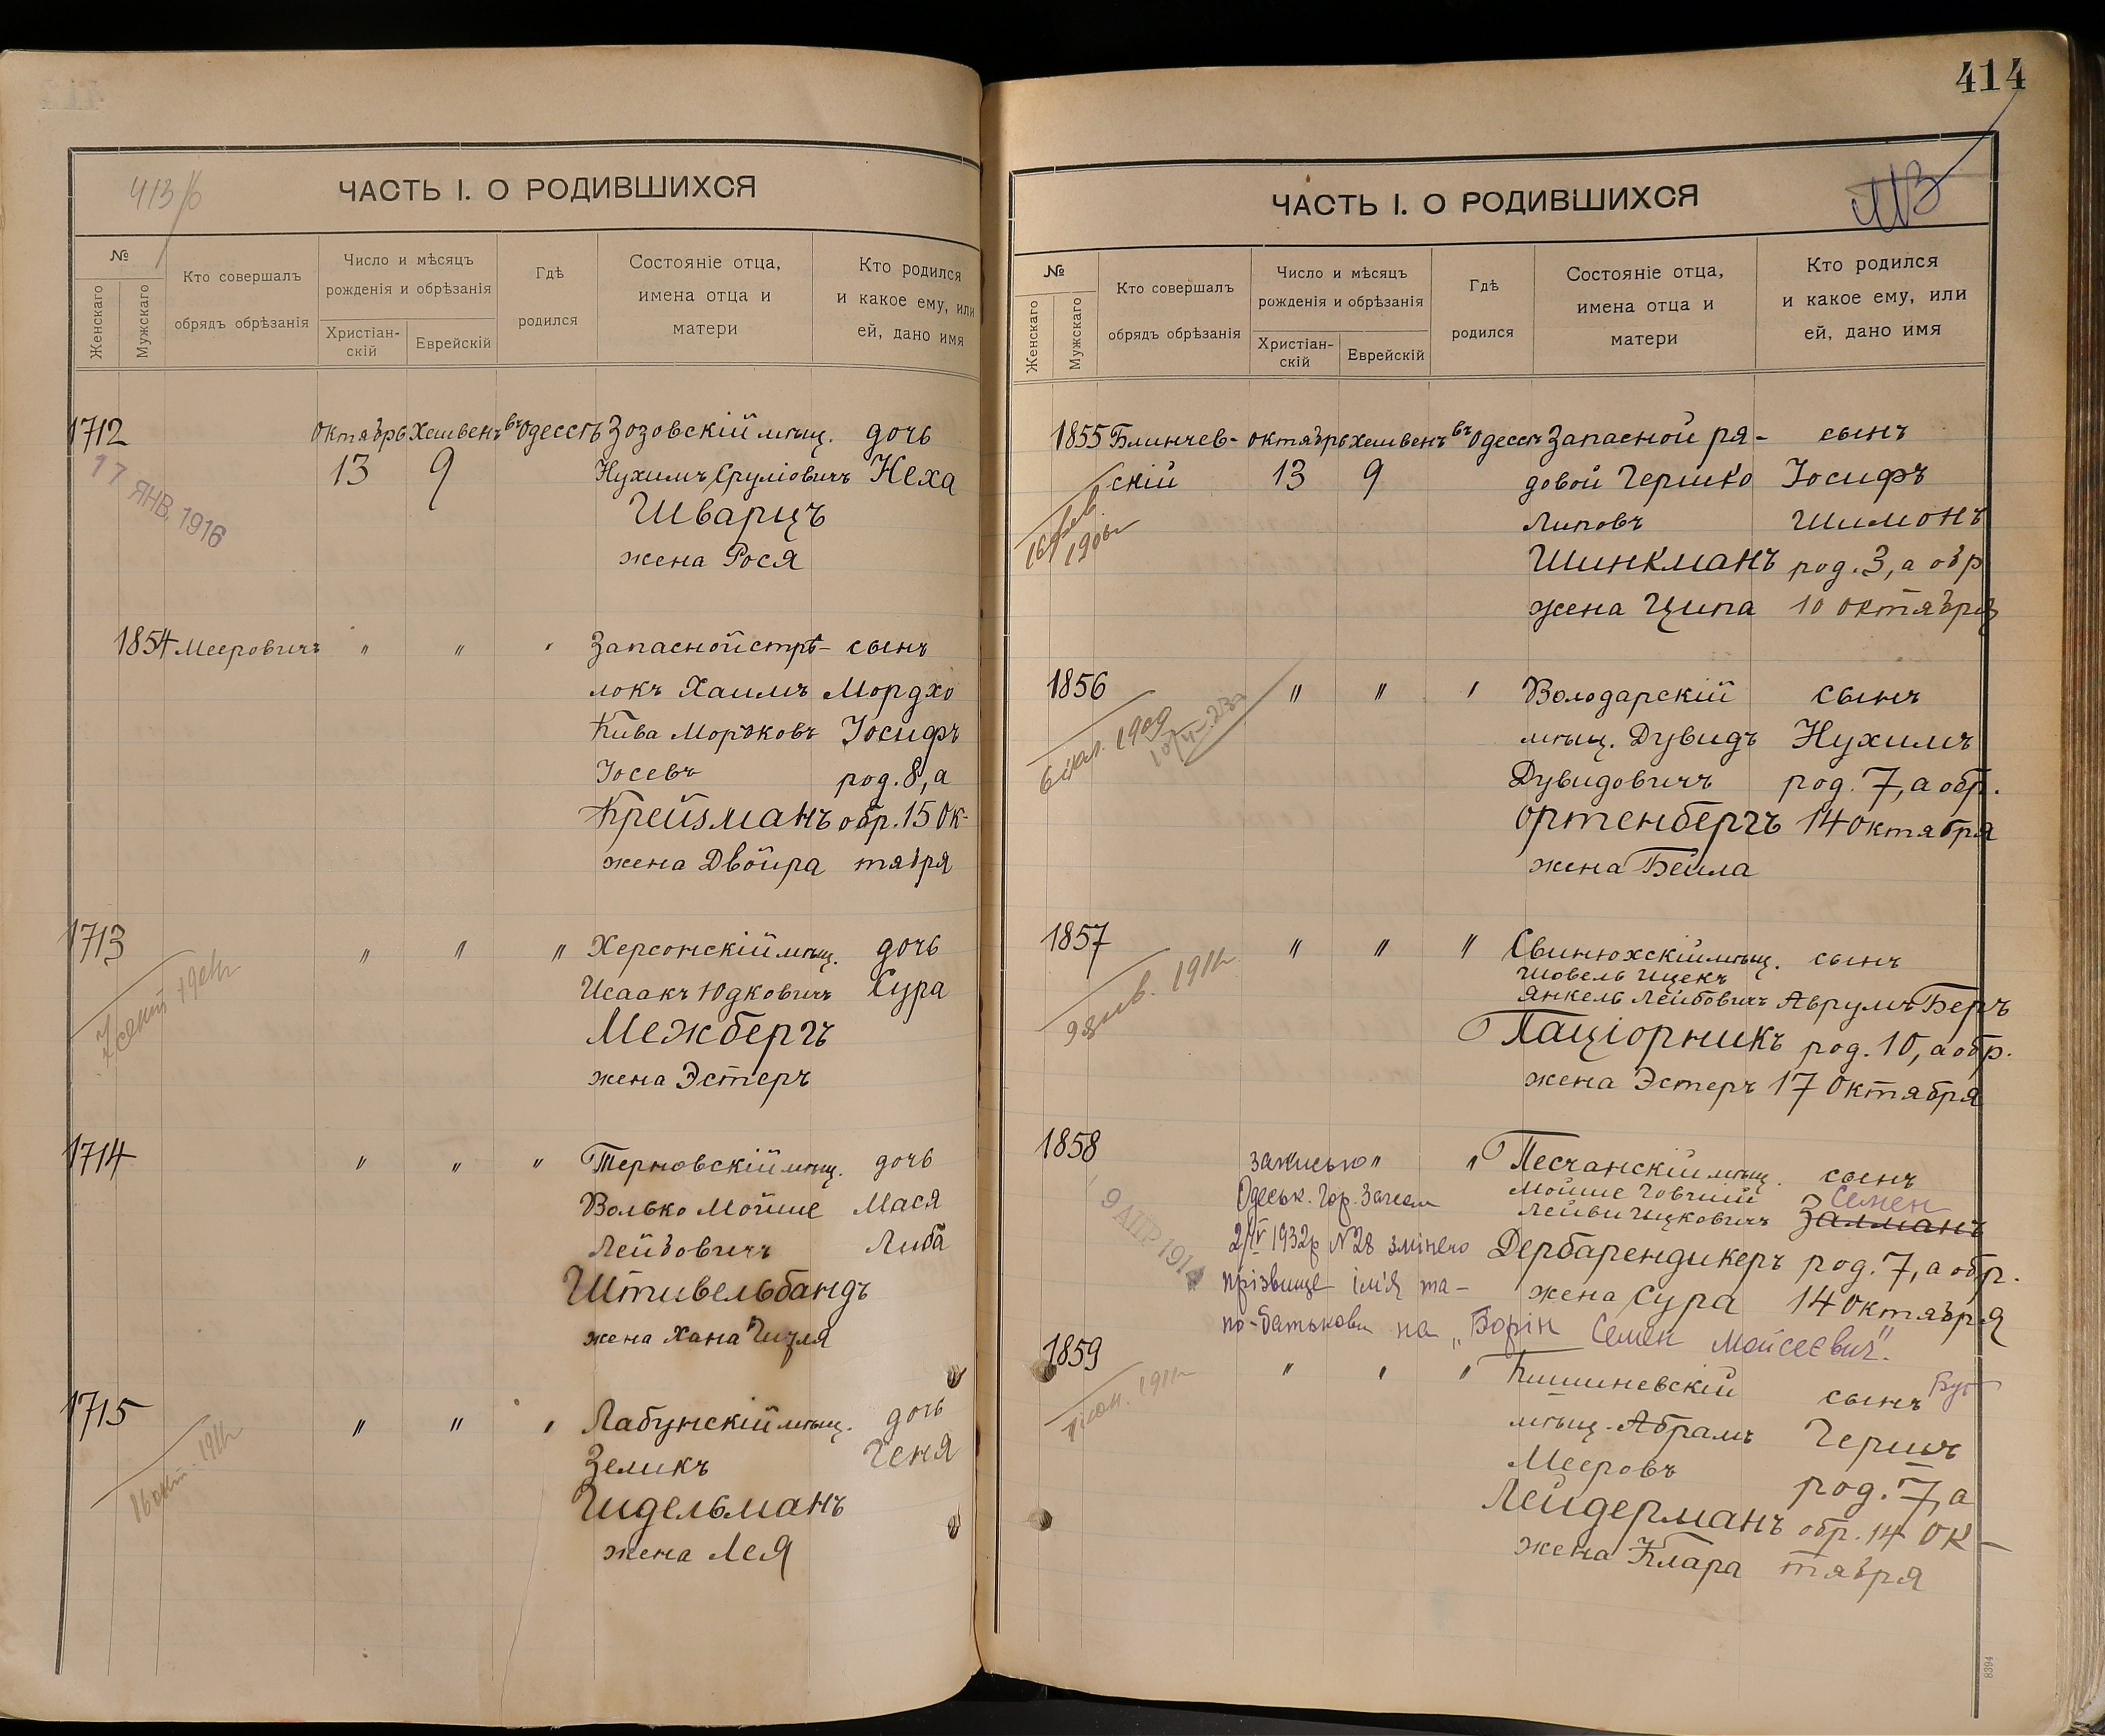 413б
ЧАСТЬ I. О РОДИВШИХСЯ
№
Женскаго
Мужскаго
Кто совершалъ
обрядъ обрѣзанія
Число и мѣсяцъ
рожденія и обрѣзанія
Христіан-
скій
Еврейскій
Гдѣ
родился
Состояніе отца,
имена отца и
матери
Кто родился
и какое ему, или
ей, дано имя
1712 Октябрь Хешвенъ въ Одессѣ Зозовскій мѣщ. дочь
17 ЯНВ. 1916
13 9 Нухимъ Сруліовичъ Неха
Шварцъ
жена Рося
1854 Мееровичъ " " " Запасной стрѣ- сынъ
локъ Хаимъ Мордхо
Кива Мордковъ Іосифъ
Іосевъ род. 8, а
Крейзманъ обр. 15 Ок-
жена Двойра тября
1713 " " " Херсонскій мѣщ. дочь
Исаакъ Юдковичъ Сура
Межбергъ
жена Эстеръ
1714 " " " Терновскій мѣщ. дочь
Волько Мойше Мася
Лейбовичъ Либа
Штивельбандъ
жена Хана Гизля
1715 " " " Лабунскій мѣщ. дочь
16 окт. 1911
Зеликъ Геня
Гидельманъ
жена Лея
414
ЧАСТЬ I. О РОДИВШИХСЯ
№
Женскаго
Мужскаго
Кто совершалъ
обрядъ обрѣзанія
Число и мѣсяцъ
рожденія и обрѣзанія
Христіан-
скій
Еврейскій
Гдѣ
родился
Состояніе отца,
имена отца и
матери
Кто родился
и какое ему, или
ей, дано имя
1855 Блинчев- октябрь хешвенъ въ Одессѣ Запасной ря- сынъ
скій 13 9 довой Гершко Іосифъ
Липовъ Шимонъ
Шинкманъ род. 3, а обр
жена Ципа 10 октября
1856 " " " Володарскій сынъ
мѣщ. Дувидъ Нухимъ
Дувидовичъ род. 7, а обр.
Ортенбергъ 14 Октября
жена Бейла
1857 " " " Свинюхскій мѣщ. сынъ
Шовель Ицекъ
Янкель Лейбовичъ Аврумъ Беръ
Паціорникъ род. 10, а обр.
жена Эстеръ 17 Октября
1858 " " Песчанскій мѣщ. сынъ
9 АПР. 1914
Мойше Говшій Семен
Лейви Ицковичъ Залманъ
Дербарендикеръ род. 7, а обр.
жена Сура 14 Октября
Одеськ. Гор.
1932р N28 змінено
прізвище ім'я та-
по-батькови на „Борін Семен Мойсеєвич".
1859 " " " Кишиневскій сынъ
мѣщ. Абрамъ Гершъ
Мееровъ род. 7, а
Лейдерманъ обр. 14 Ок-
жена Клара тября
8394